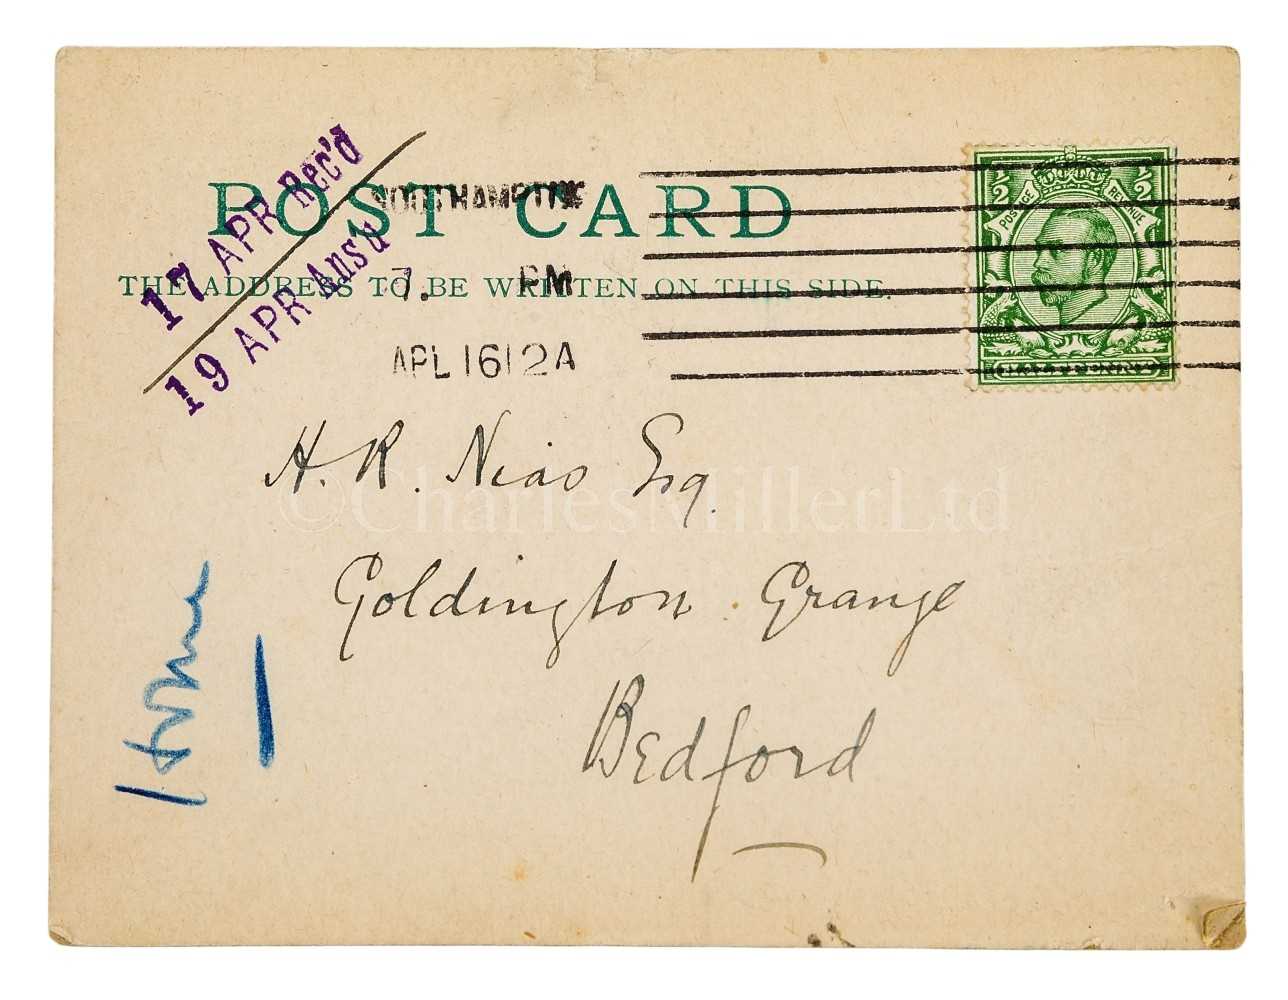 17 APR Rec'd
19 APR Ans'd
POST CARD
SOUTHAMPTON
THE ADDRESS TO BE WRITTEN ON THIS SIDE.
7. PM
APL 16 12 A
½ ½
POSTAGE REVENUE
HALFPENNY
H. R. Nias Esq.
©CharlesMillerLtd
Goldington Grange
Bedford
Home